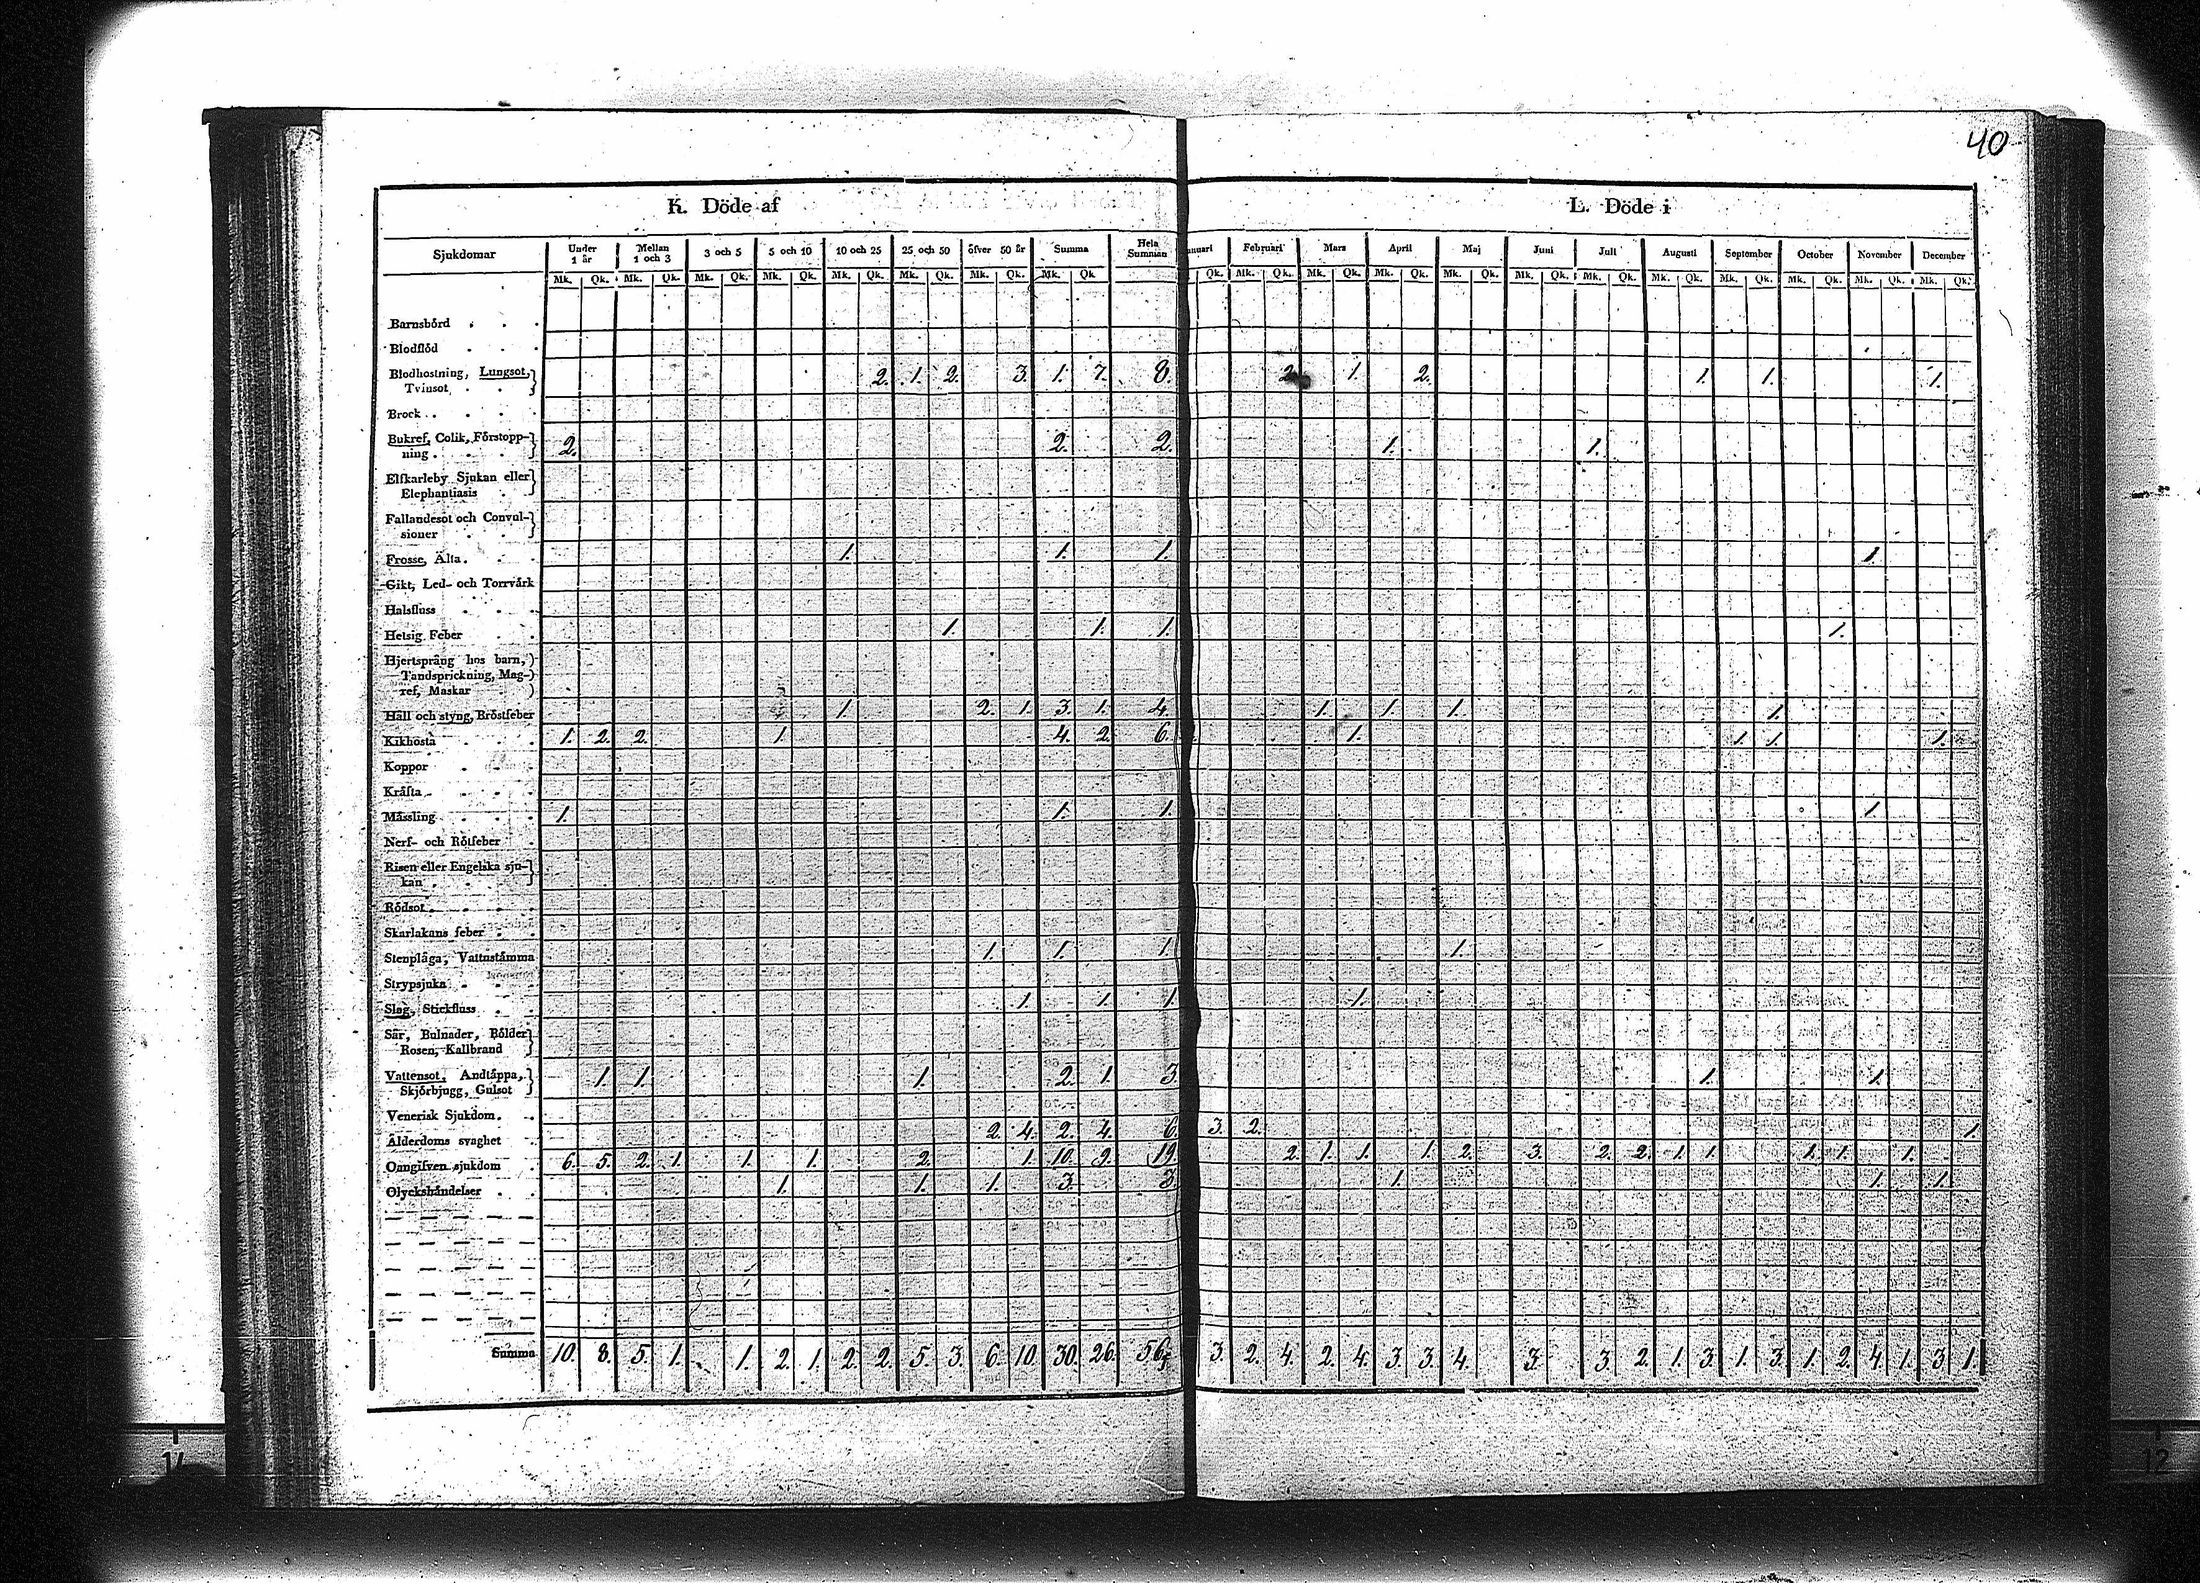 40
K. Döde af
L. Döde i
Sjukdomar Under 1 år Mellan 1 och 3 3 och 5 5 och 10 10 och 25 25 och 50 öfver 50 år Summa Hela Summan nuari Februari Mars April Maj Juni Juli Augusti September October November December
Mk. Qk. Mk. Qk. Mk. Qk. Mk. Qk. Mk. Qk. Mk. Qk. Mk. Qk. Mk. Qk Qk. Mk. Qk. Mk. Qk. Mk. Qk. Mk. Qk. Mk. Qk. Mk. Qk. Mk. Qk. Mk. Qk. Mk. Qk. Mk. Qk. Mk. Qk.
Barnsbörd
Blodflöd
Blodhostning, Lungsot,
Tvinsot 2. 1. 2. 3. 1. 7. 8. 2. 1. 2. 1. 1. 1.
Brock
Bukref, Colik, Förstopp-
ning 2. 2. 2. 1. 1.
Elfkarleby Sjukan eller
Elephantiasis
Fallandesot och Convul-
sioner
Frosse, Älta 1. 1. 1. 1.
Gikt, Led- och Torrvärk
Halsfluss
Hetsig Feber 1. 1. 1. 1.
Hjertspräng hos barn,
Tandsprickning, Mag-
ref, Maskar
Håll och styng, Bröstfeber 1. 2. 1. 3. 1. 4. 1. 1. 1. 1.
Kikhosta 1. 2. 2. 1. 4. 2. 6. 1. 1. 1. 1.
Koppor
Kräfta
Mässling 1. 1. 1. 1.
Nerf- och Rötfeber
Risen eller Engelska sju-
kan
Rödsot
Skarlakans feber
Stenplåga, Vattnstämma 1. 1. 1. 1.
Strypsjuka
Slag, Stickfluss 1. 1. 1. 1.
Sår, Bulnader, Bölder
Rosen, Kallbrand
Vattensot, Andtäppa,
Skjörbjugg, Gulsot 1. 1. 1. 2. 1. 3. 1. 1.
Venerisk Sjukdom
Ålderdoms svaghet 2. 4. 2. 4. 6. 3. 2. 1.
Oangifven sjukdom 6. 5. 2. 1. 1. 1. 2. 1. 10. 9. 19. 2. 1. 1. 1. 2. 3. 2. 2. 1. 1. 1. 1. 1.
Olyckshändelser 1. 1. 1. 3. 3. 1. 1. 1.
Summa 10. 8. 5. 1. 1. 2. 1. 2. 2. 5. 3. 6. 10. 30. 26. 56. 3. 2. 4. 2. 4. 3. 3. 4. 3. 3. 2. 1. 3. 1. 3. 1. 2. 4. 1. 3. 1.
12